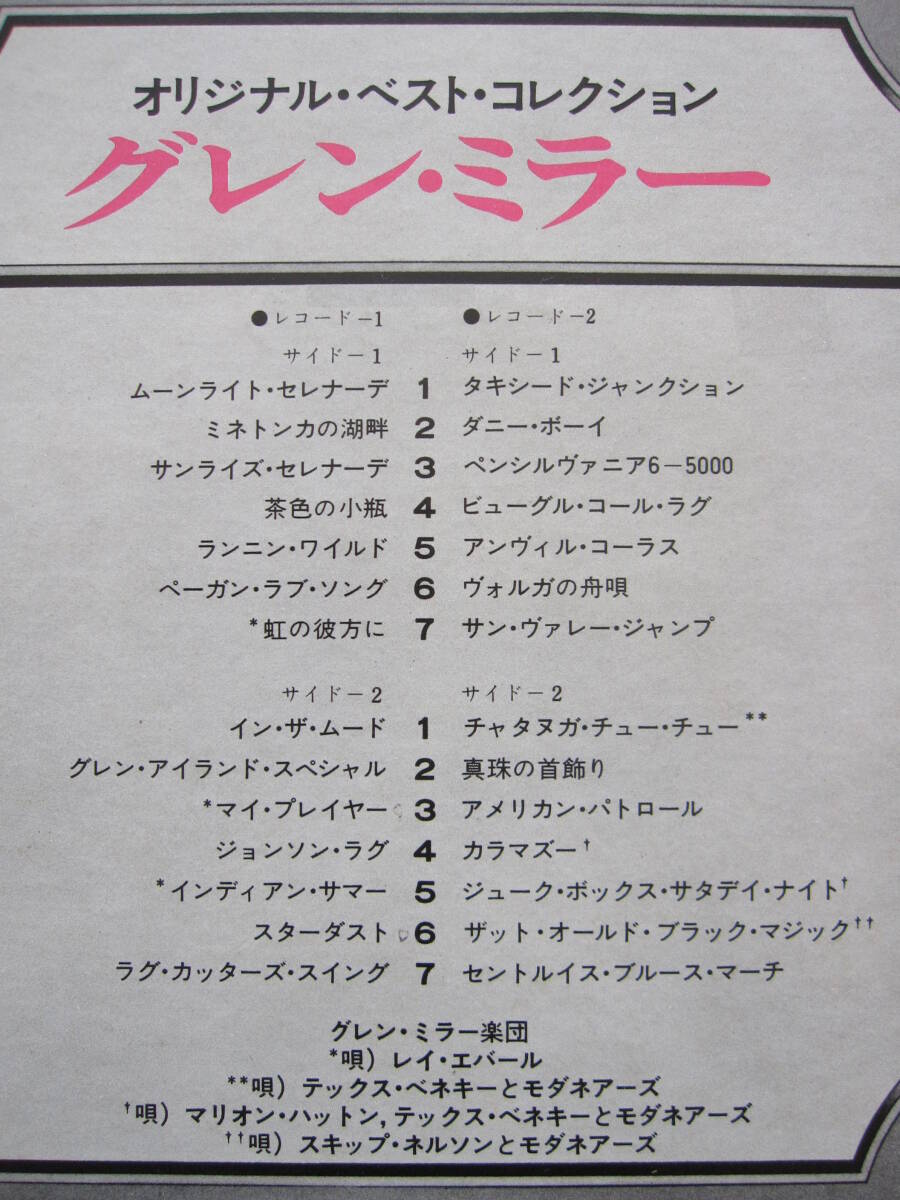 オリジナル・ベスト・コレクション
グレン・ミラー
●レコード−1
サイド−1
ムーンライト・セレナーデ 1
ミネトンカの湖畔 2
サンライズ・セレナーデ 3
茶色の小瓶 4
ランニン・ワイルド 5
ペーガン・ラブ・ソング 6
*虹の彼方に 7
サイド−2
イン・ザ・ムード 1
グレン・アイランド・スペシャル 2
*マイ・プレイヤー 3
ジョンソン・ラグ 4
*インディアン・サマー 5
スターダスト 6
ラグ・カッターズ・スイング 7
●レコード−2
サイド−1
タキシード・ジャンクション
ダニー・ボーイ
ペンシルヴァニア6−5000
ビューグル・コール・ラグ
アンヴィル・コーラス
ヴォルガの舟唄
サン・ヴァレー・ジャンプ
サイド−2
チャタヌガ・チュー・チュー**
真珠の首飾り
アメリカン・パトロール
カラマズー†
ジューク・ボックス・サタデイ・ナイト†
ザット・オールド・ブラック・マジック††
セントルイス・ブルース・マーチ
グレン・ミラー楽団
*唄) レイ・エバール
**唄) テックス・ベネキーとモダネアーズ
†唄) マリオン・ハットン,テックス・ベネキーとモダネアーズ
††唄) スキップ・ネルソンとモダネアーズ